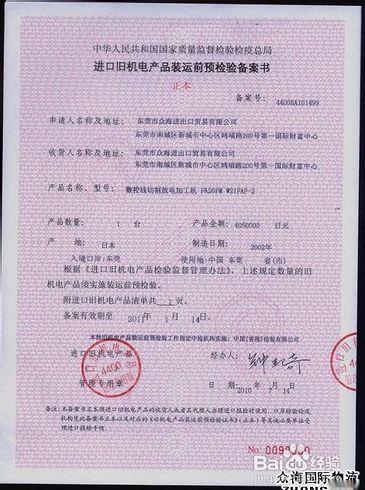 中华人民共和国国家质量监督检验检疫总局
进口旧机电产品装运前预检验备案书
正本
备案号： 4400EA101499
申请人名称及地址： 东莞市众海进出口贸易有限公司
东莞市南城区新城市中心区鸿福路200号第一国际财富中心
收货人名称及地址： 东莞市众海进出口贸易有限公司
东莞市南城区新城市中心区鸿福路200号第一国际财富中心
产品名称、型号： 数控线切割放电加工机 FA20PM W21FAP-2
产品数量： 1 台 产品金额： 4050000 日元
产 地： 日本 制造日期： 2002年
入境口岸：东莞 使用地：中国 东莞 省(市)
根据《进口旧机电产品检验监督管理办法》，上述规定数量的旧
机电产品须实施装运前预检验。
附进口旧机电产品清单共 1 页。
备案有效期至 2011 年 1 月 14 日。
本批旧机电产品装运前预检验工作指定中检机构实施：中国(香港)检验有限公司
进口旧机电产品
经办人：
管理专用章
日期： 2010 年 7 月 14 日
4400
No.
Baidu经验
众海国际物流